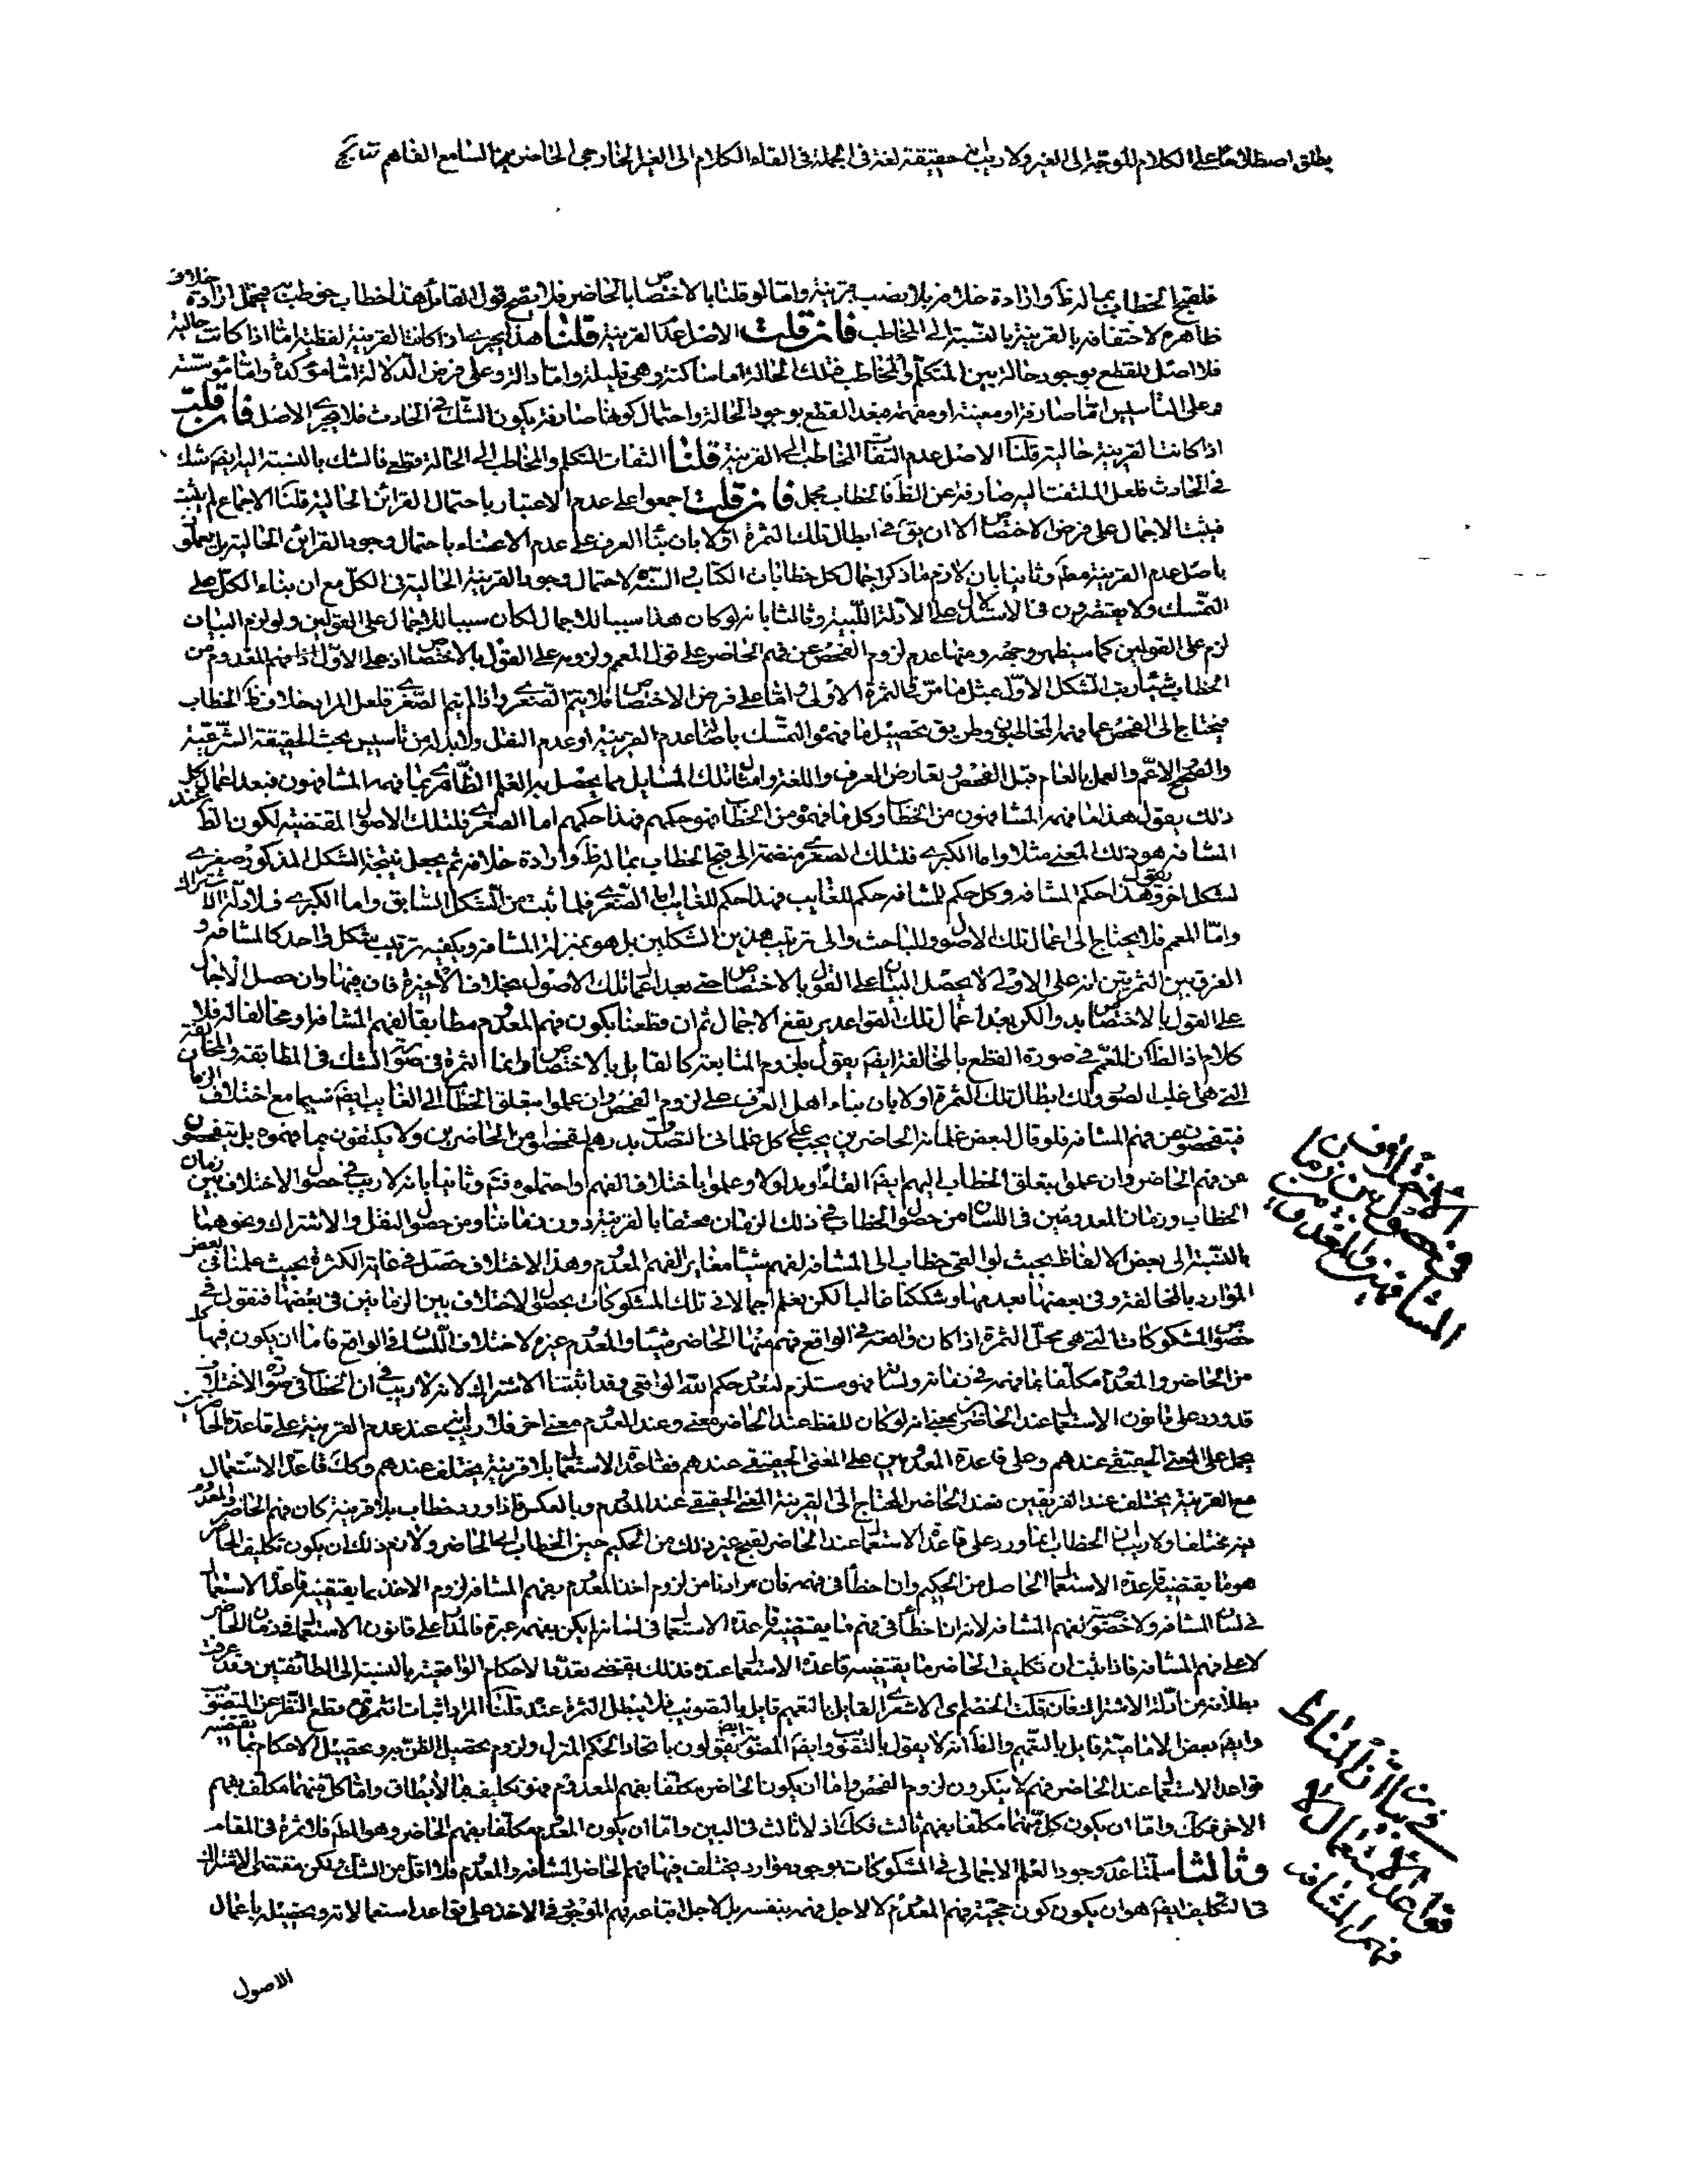 يطلق اصطلاحا على الكلام الموجه الى الغير ولا ريب انه حقيقة لغة فى الجملة فى القاء الكلام الى الغير الخارجى الحاضر السامع الفاهم نتايج
فلقبح الخطاب بما له ظ وارادة خلافه بلا نصب قرينة واما لو قلنا بالاختصاص بالحاضر فلا يقبح قول القائل هذا خطاب خوطب به يحتمل ارادة خلاف
ظاهره لاحتفافه بالقرينة بالنسبة الى المخاطب فان قلت الاصل عدم القرينة قلنا هذا يجرى اذا كانت القرينة لفظية اما اذا كانت حالية
فلا اصل للقطع بوجود حالة بين المتكلم والمخاطب فتلك الحالة اما ساكتة وهى قليلة واما دالة وعلى فرض الدلالة اما مؤكدة واما مؤسسة
وعلى التاسيس اما صارفة او معينة او مفهمة فبعد القطع بوجود الحالة واحتمال كونها صارفة يكون الشك فى الحادث فلا يجرى الاصل فان قلت
اذا كانت القرينة حالية قلنا الاصل عدم التفات المخاطب الى القرينة قلنا التفات المتكلم والمخاطب الى الحالة قطعى فالشك بالنسبة اليه ايضا شك
فى الحادث فلعل الملتفت اليه صارفة عن الظ فالخطاب مجمل فان قلت اجمعوا على عدم الاعتبار باحتمال القرائن الحالية قلنا الاجماع لم يثبت
فيثبت الاجمال على فرض الاختصاص الا ان يق فى ابطال تلك الثمرة اولا بان بناء العرف على عدم الاعتناء باحتمال وجود القرائن الحالية بل يعملون
باصل عدم القرينة مطم وثانيا بان لازم ما ذكر اجمال كل خطابات الكتاب والسنة لاحتمال وجود القرينة الحالية فى الكل مع ان بناء الكل على
التمسك ولا يقتصرون فى الاستدلال على الادلة اللبية وثالثا بانه لو كان هذا سببا للاجمال لكان سببا للاجمال على القولين ولو لزم البيان
لزم على القولين كما سيظهر وجهه ومنها عدم لزوم الفحص عن فهم الحاضر على قول المعمم ولزومه على القول بالاختصاص اذ على الاول اذا فهم المعدوم من
الخطاب شيئا رتب الشكل الاول بمثل ما مر فى الثمرة الاولى واما على فرض الاختصاص فلا يتم الصغرى واذا لم يتم الصغرى فلعل المراد خلاف ظ الخطاب
فيحتاج الى الفحص عما فهمه المخاطبون وطريق تحصيل ما فهموا التمسك باصالة عدم القرينة او عدم النقل ولابد له من تاسيس بحث الحقيقة الشرعية
والصحيح والاعم والعمل بالعام قبل الفحص وتعارض العرف واللغة وامثال تلك المسايل مما يحصل به العلم الظاهرى بما فهمه المشافهون فبعد اعمال كل
ذلك يقول هذا ما فهمه المشافهون من الخطاب وكل ما فهموه من الخطاب فهو حكمهم فهذا حكمهم اما الصغرى فلتلك الاصول المقتضية لكون الظ عند
المشافه هو ذلك المعنى مثلا واما الكبرى فلتلك الصغرى منضمة الى قبح الخطاب بما له ظ وارادة خلافه ثم يجعل نتيجة الشكل المذكور صغرى
لشكل اخر ويقول هذا حكم المشافه وكل حكم للمشافه حكم للغايب فهذا حكم للغايب اما الصغرى فلما ثبت من الشكل السابق واما الكبرى فلادلة الاشتراك
واما المعمم فلا يحتاج الى اعمال تلك الاصول والمباحث والى ترتيب هذين الشكلين بل هو بمنزلة المشافه ويكفيه ترتيب شكل واحد كالمشافه و
الفرق بين الثمرتين انه على الاولى لا يحصل البيان على القول بالاختصاص حتى بعد اعمال تلك الاصول بخلاف الاخيرة فان فيها وان حصل الاجمال
على القول بالاختصاص بدوا لكن بعد اعمال تلك القواعد يرتفع الاجمال ثم ان قطعنا بكون فهم المعدوم مطابقا لفهم المشافه او مخالفا له فلا
كلام اذ الظ ان المعمم فى صورة القطع بالمخالفة ايضا يقول بلزوم المتابعة كالقايل بالاختصاص وانما الثمرة فى صورة الشك فى المطابقة والمخالفة
التى هى غالب الصور ولك ابطال تلك الثمرة اولا بان بناء اهل العرف على لزوم الفحص وان علموا بتعلق الخطاب الى الغايب ايضا سيما مع اختلاف الزمان
فيتفحصون عن فهم المشافه فلو قال لبعض غلمانه الحاضرين يجب على كل غلمانى التصدق بدرهم لفحصوا من الحاضرين ولا يكتفون بما فهموه بل يتفحصون
عن فهم الحاضر وان علموا بتعلق الخطاب اليهم ايضا القاء ومدلولا وعلموا باختلاف الفهم او احتملوه فتم وثانيا بانه لا ريب فى حصول الاختلاف بين زمان
الخطاب وزمان المعدومين فى اللسان من حصول الخطاب فى ذلك الزمان محتفا بالقرينة دون زماننا ومن حصول النقل والاشتراك ونحوهما
بالنسبة الى بعض الالفاظ بحيث لو القى خطاب الى المشافه لفهم شيئا مغايرا لفهم المعدوم وهذا الاختلاف حصل فى غاية الكثرة بحيث علمنا فى بعض
الموارد بالمخالفة وفى بعضها بعدمها وشككنا غالبا لكن نعلم اجمالا فى تلك المشكوكات بحصول الاختلاف بين الزمانين فى بعضها فنقول فى
خصوص المشكوكات التى هى محل الثمرة اذا كان واقعة فى الواقع فهم منها الحاضر شيئا والمعدوم غيره لاختلاف اللسان فى الواقع فاما ان يكون فيها كل
من الحاضر والمعدوم مكلفا بما فهمه فى زمانه ولسانه فهو مستلزم لتعدد حكم الله الواقعى وقد اثبتنا الاشتراك لانه لا ريب فى ان الخطاب فى صورة الاختلاف
قد ورد على قانون الاستعمال عند الحاضرين بمعنى انه لو كان للفظ عند الحاضر معنى وعند المعدوم معنى اخر فلا ريب انه عند عدم القرينة على قاعدة الحاضرين
يحمل على المعنى الحقيقى عندهم وعلى قاعدة المعدومين على المعنى الحقيقى عندهم فقاعدة الاستعمال بلا قرينة يختلف عندهم وكك قاعدة الاستعمال
مع القرينة يختلف عند الفريقين فعند الحاضر المحتاج الى القرينة المعنى الحقيقى عند المعدوم وبالعكس فاذا ورد خطاب بلا قرينة كان فهم الحاضر والمعدوم
فيه مختلفا ولا ريب ان الخطاب انما ورد على قاعدة الاستعمال عند الحاضر لقبح غير ذلك من الحكيم حين الخطاب الى الحاضر ولازم ذلك ان يكون تكليف الحاضر
هو ما يقتضيه قاعدة الاستعمال الحاصل من الحكيم وان اخطأ فى فهمه فان مرادنا من لزوم اخذ المعدوم بفهم المشافه لزوم الاخذ بما يقتضيه قاعدة الاستعمال
فى لسان المشافه ولا خصوصية لفهم المشافه لانه ان اخطأ فى فهم ما يقتضيه قاعدة الاستعمال فى لسانه لم يكن بفهمه عبرة فالمدار على قانون الاستعمال فى زمان الحاضر
لا على فهم المشافه فاذا ثبت ان تكليف الحاضر ما يقتضيه قاعدة الاستعمال عنده فذلك يقتضى تعدد الاحكام الواقعية بالنسبة الى الطائفتين وقد عرفت
بطلانه من ادلة الاشتراك فان قلت الخصم اى الاشعرى القايل بالتعميم قايل بالتصويب فلا يبطل الثمرة عنده قلنا المراد اثبات الثمرة مع قطع النظر عن التصويب
وايضا بعض الامامية قايل بالتعميم والظ انه لا يقول بالتصويب وايضا المصوبة ايضا يقولون باتحاد الحكم المنزل ولزوم تحصيل الظن به وتحصيل الاحكام بما يقتضيه
قواعد الاستعمال عند الحاضر فهم لا ينكرون لزوم الفحص واما ان يكون الحاضر مكلفا بفهم المعدوم فهو تكليف بما لا يطاق واما كل منهما مكلف بفهم
الاخر فكك واما ان يكون كل منهما مكلفا بفهم ثالث فكك اذ لا ثالث فى البين واما ان يكون المعدوم مكلفا بفهم الحاضر وهو المط فلا ثمرة فى المقام
وثالثا سلمنا عدم وجود العلم الاجمالى فى المشكوكات بوجود موارد يختلف فيها فهم الحاضر المشافه والمعدوم فلا اقل من الشك لكن مقتضى الاشتراك
فى التكليف ايضا هو ان يكون كون حجية فهم المعدوم لا لاجل فهمه بنفسه بل لاجل اتباعه فهم الموجود فى الاخذ على قواعد استعمالاته وتحصيله باعمال
الاصول
فى حصول الاختلاف بين زمان المشافهين والمعدومين
فى بيان ان المناط قواعد الاستعمال لا فهم المشافه